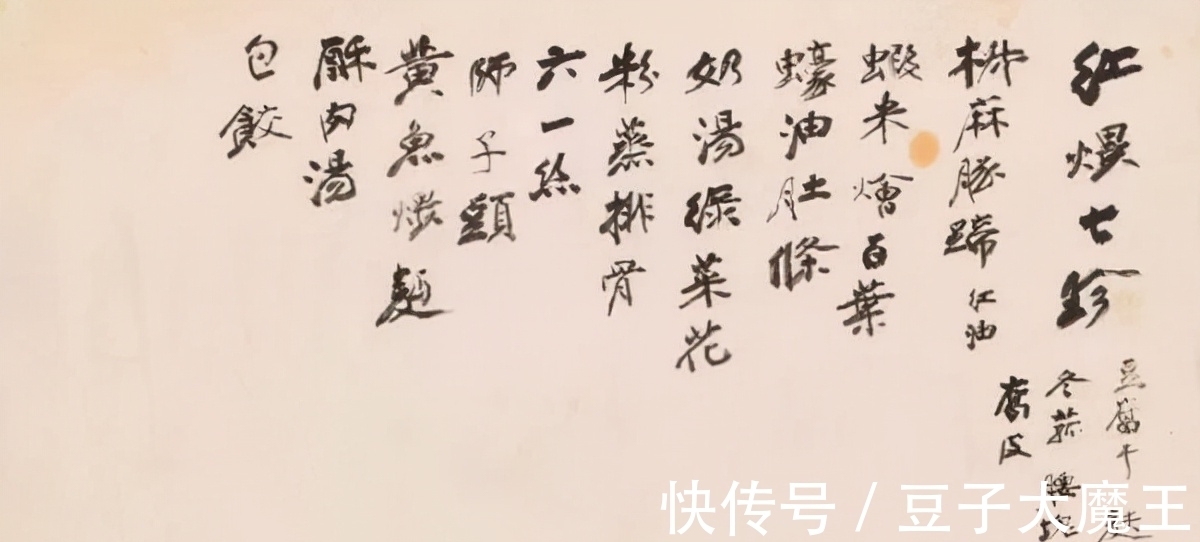 紅煨七珍
豆腐干
冬菰 腰
腐皮
椒麻豚蹄 紅油
蝦米燴百葉
蠔油肚條
奶湯綠菜花
粉蒸排骨
六一絲
師子頭
黃魚 麵
酥肉湯
包餃
快传号 / 豆子大魔王